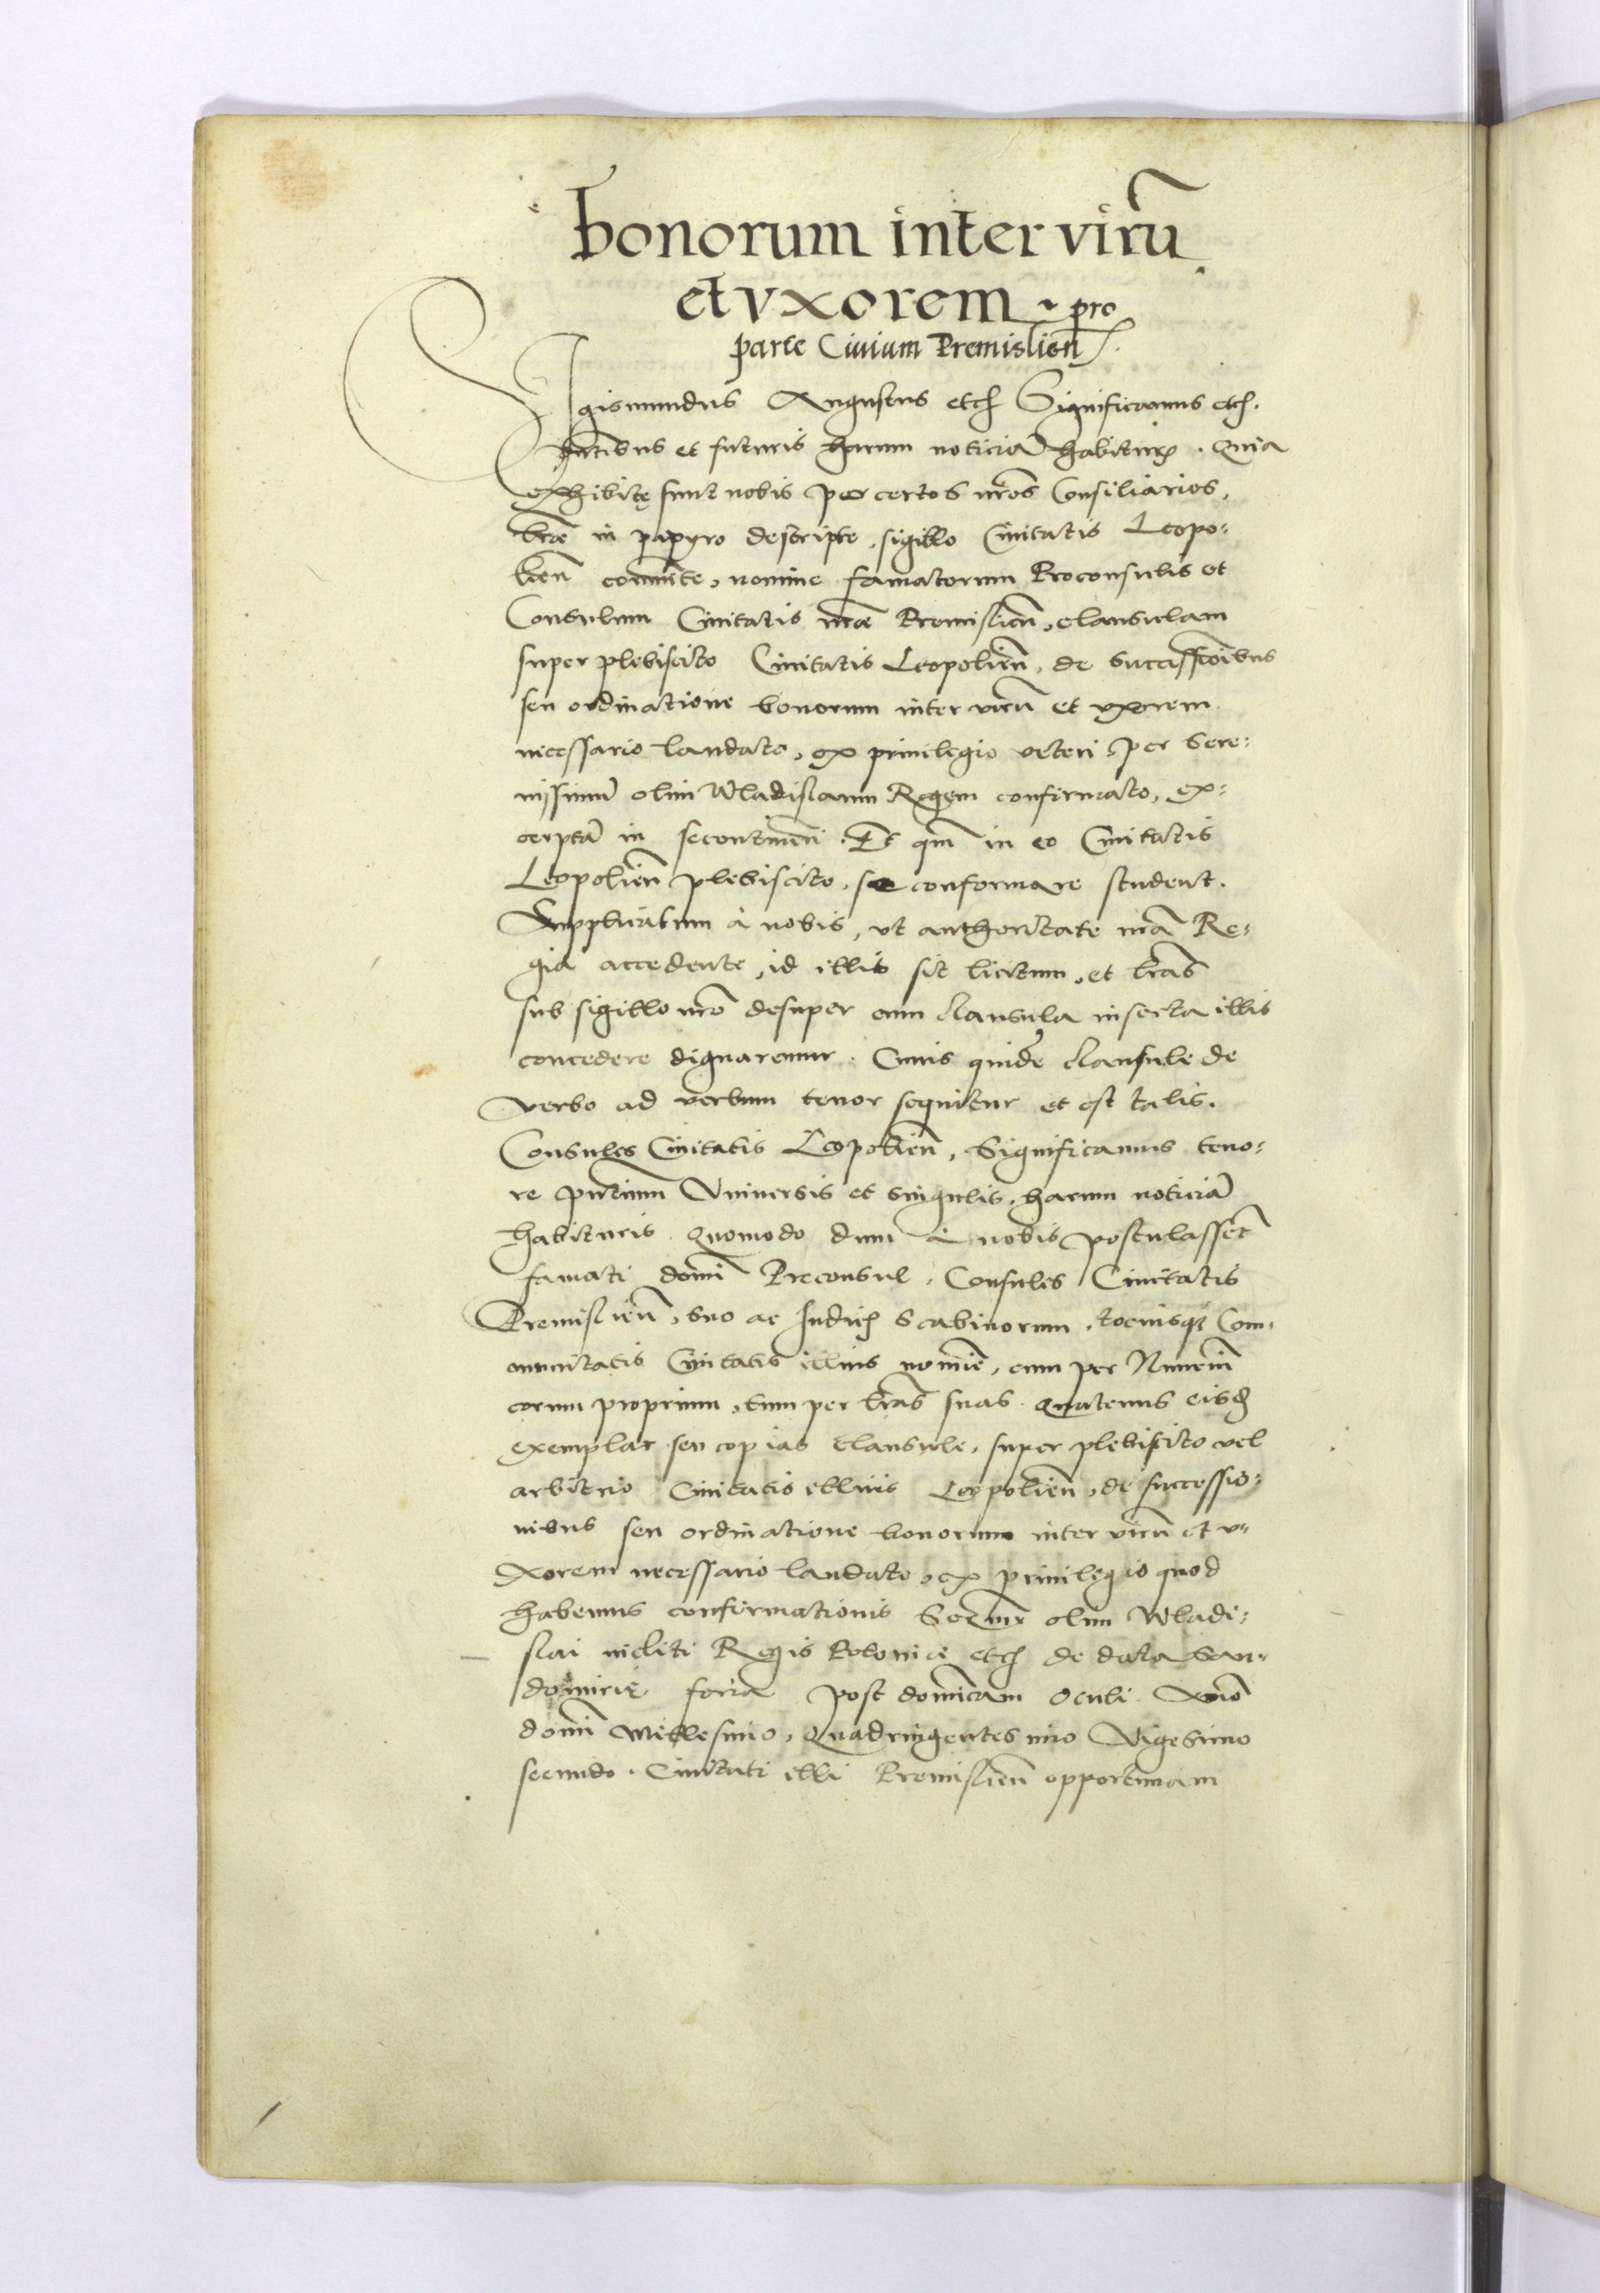 bonorum inter virũ
et vxorem pro
parte Ciuium Premislien̄.
Sigismundus Augustus etc̃ Significamus etc̃.
pn̄tibus et futuris harum noticiã habituris. Quia
exhibitę sunt nobis per certos nr̄os Consiliarios,
lr̄ae in papyro descripte, sigillo Ciuitatis Leopo-
lien̄ com̄unite, nomine famatorum Proconsulis et
Consulum Ciuitatis nr̄ae Premislien̄, clausulam
super plebiscito Ciuitatis Leopolien̄, de successioībus
seu ordinatione bonorum inter virũ et vxorem
necessario laudato, ex priuilegio veteri, per Sere-
nissimũ olim Wladislaum Regem confirmato, ex-
cerptã in se continen̄. Et qm̄ in eo Ciuitatis
Leopolien̄ plebiscito, se conformare student.
Supplicatum a nobis, vt authoritate nr̄a Re-
gia accedente, id illis sit licitum, et lr̄as
sub sigillo nr̄o desuper cum clausula inserta illis
concedere dignaremur. Cuius quidẽ clausule de
verbo ad verbum tenor sequitur et est talis.
Consules Ciuitatis Leopolien̄, Significamus teno-
re pn̄tium Vniuersis et singulis, harum noticiã
habituris. Quomodo dum a nobis postulassẽt
famati domĩ Proconsul, Consules Ciuitatis
Premislien̄, suo ac IudicῘ Scabinorum, tociusq3 Com-
munitatis Ciuitatis illius nomīe, cum per Nunciũ
eorum proprium, tum per lr̄as suas. Quatenus eisd̄
exemplar seu copias clausule, super plebiscito vel
arbitrio Ciuitatis illius Leopolien̄, de successio-
nibus seu ordinatione bonorum inter virũ et v-
xorem necessario laudato, ex priuilegio quod
habemus confirmationis Serm̄i olim Wladi-
slai incliti Regis Polonie etc̃ de data San-
domirię feria post domīcam Oculi. Anno
domī Millesimo, Quadringentesimo Vigesimo
secundo. Ciuitati illi Premislien̄ opportunam